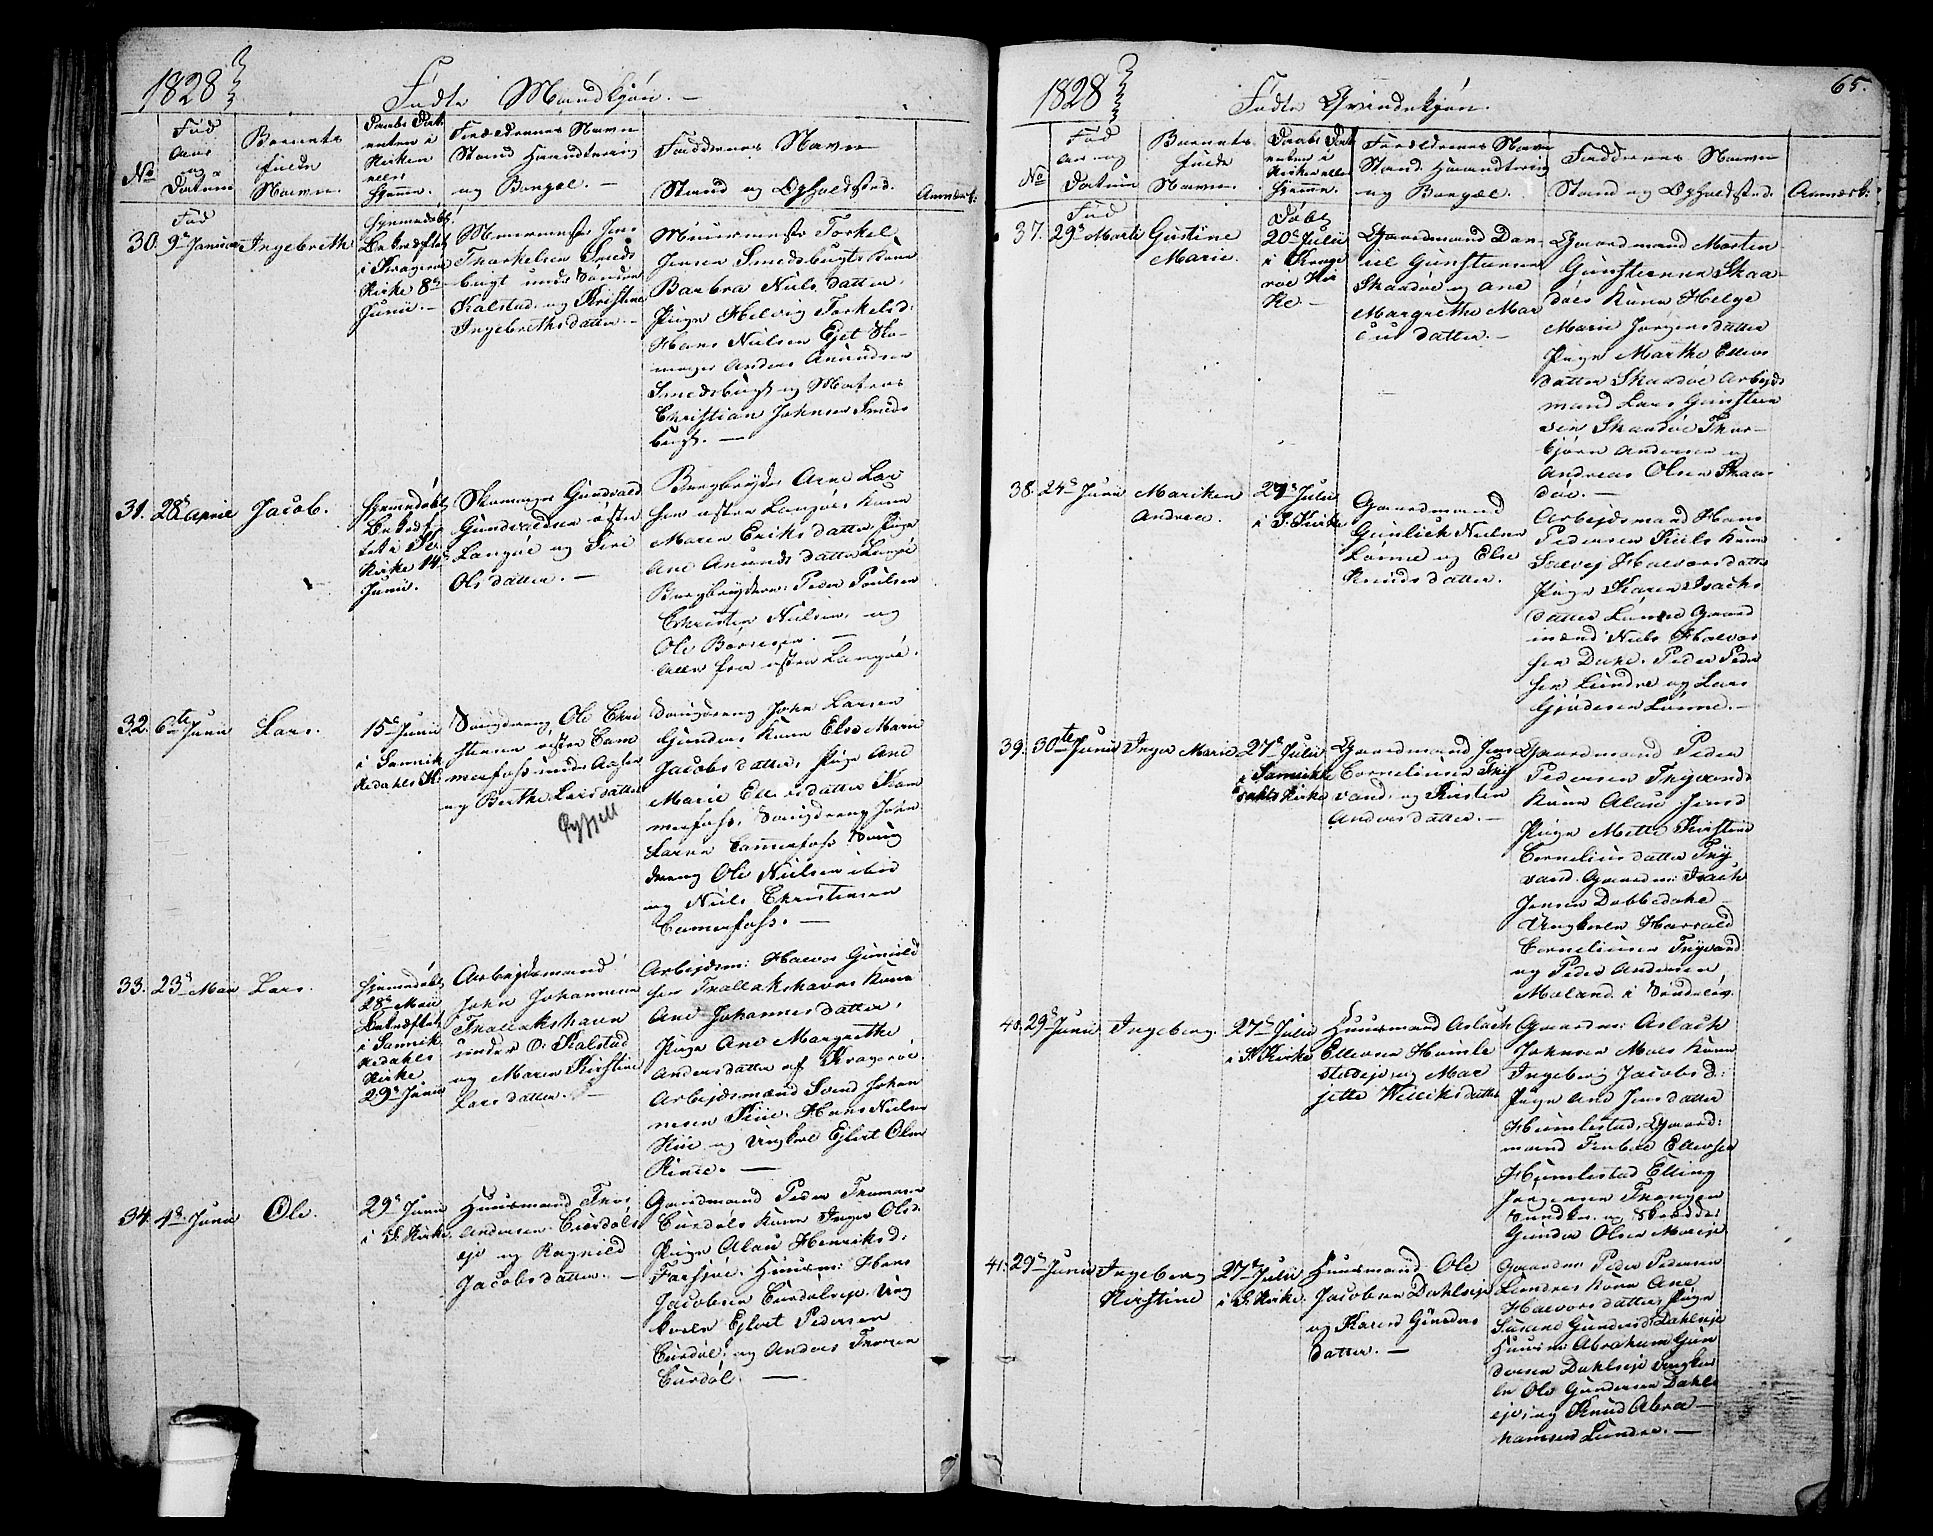 1828
Fødte Mandkjøn. —
No
Fød
Aar
og
Datum
Barnets
fulde
Navn.
Daabs Dat
enten i
Kirken
eller
Hjemme.
Forældrenes Navn
Stand Haandtering
og Bopæl. —
Faddernes Navn
Stand og Opholdsted.
Anmærk:
30.
Fød
9de Januar
Ingebreth
Hjemmedøbt
Bekræftet
i Kragerøe
Kirke 8de
Junii. —
Muurmester Jens
Thorkelsen Smeds
bugt under Søndre
Kalstad og Kirstine
Ingebrethsdatter. —
Muurmester Torkel
Jensen Smedsbugts Kone
Barbra Nielsdatter,
Pige Helvig Torkelsd:
Hans Nielsen Ejet Sko-
mager Anders Amundsen
Smedsbugt og Matros
Christian Johnsen Smeds
bugt. —
31.
28de April
Jacob.
Hjemmedøbt
Bekræf
tet i
Kirke 14de
Junii.
Skomager Gundvald
Gundvaldsen østre
Langøe og Siri
Olsdatter. —
Bergbryder Arne Lar
sen østre Langøes Kone
Maren Eriksdatter, Pige
Ane Amundsdatter Langøe
Bergbrydere: Peder Poulsen
Christen Nielsen, og
Ole Børresen. —
Alle fra østre Langøe.
32.
6te Junii
Lars.
15de Junii
i Sannik
kedahls K:
Saugdreng Ole Chri
stensen østre Cam
merfoss under
og Berthe Larsdatter
Saugdreng John Larsen
Kone Else Marie
Jacobsdatter, Pige Ane
Marie Ellevsdatter Kam
merfoss, Saugdreng John
Larsen Camerfoss Saug
dreng Ole Nielsen ibid
og Niels Christensen
Camerfoss. —
33.
23de Mai
Lars.
Hjemmedøbt
28de Maii
Bekræftet
i Sannik
kedahls
Kirke
29de Junii
Arbeidsmand
John Johannesen
Trallakshavn
under O: Kalstad
og Maren Kirstine
Larsdatter. —
Arbeidsm: Halvor Gunuld
sen Trallakshavns Kone
Ane Johannesdatter,
Pige Ane Margrethe
Andersdatter af Kragerøe
Arbejdsmand Svend Johan
nesen Kiie. Hans Nielsen
Kiie og Ungkarl Ejlert Olsen
Rinde. —
34.
4de Junii
Ole.
29de Junii
i S. Kirke.
Huusmand Thor
Andersen Eurdøls
eje og Ragnild
Jacobsdatter. —
Gaardmand Peder Thomasen
Eurdøls Kone Inger Olsd:
Pige Alau Henriksd:
Farsjøe. Huusm: Hans
Jacobsen Eurdølseje, Ung
karle Ejlert Pedersen
Eurdøl, og Anders Thorsen
Eurdøl. —
1828
Fødte Qvindekjøn.
65.
No
Fød
Aar og
Datum
Barnets
fulde
Navn.
Daabs Dat
enten i
Kirke eller
Hjemme.
Forældrenes Navn
Stand Haandtering
og Bopæl.
Faddernes Navn
Stand og Opholdsted.
Anmærk:
37.
Fød
29de Marti
Gustine
Marie.
Døbt
20de Julii
i Krage
røe Kir
ke —
Gaardmand Dan
iel Gunstensen
Skaadøe og Ane
Margrethe Mar
cusdatter. —
Gaardmand Morten
Gunstensen Skaa
døes Kone Helge
Marie Jørgensdatter
Pige Marthe Ellevs
datter Skaadøe Arbejds
mand Lars Gunsten
sen Skaadøe Thor-
bjørn Andersen og
Andreas Olsen Skaa
døe. —
38.
24de Junii
Mariken
Andrea.
27de Julii
i S. Kirke
Gaardmand
Gunlich Nielsen
Lønne og Else
Knudsdatter.
Arbejdsmand Hans
Pedersen Kiils Kone
Solvej Halvorsdatter
Pige Karen Isachs
datter Lønne Gaard
mænd Niels Halvor
sen Dake, Peder Peder
sen Lundre og Lars
Gjødesen Lønne. —
39.
30te Junii
Inger Marie
27de Julii
i Sannikke
dahls Kirke
Gaardmand Jens
Corneliusen Try
vand, og Kirsten
Andersdatter. —
Gaardmand Peder
Pedersen Trÿvands
Kone Alau Jensd
Pige Mette Kirstine
Corneliusdatter Trÿ
vand. Gaardm: Isach
Jensen Dobbedahl —
Ungkarle Harrald
Corneliusen Trÿvand
og Peder Andersen
Moland i Søndeløv.
40.
29de Junii
Ingeberg.
27de Julii
i S. Kirke
Huusmand Aslach
Ellevsen Humle
stadeje, og Mar
jette Williksdatter
Gaardm: Aslach
Johnsen Moes Kone
Ingeberg Jacobsd:
Pige And Jensdatter
Humlestad, Gaard:
mand Ellevsen
Humlestad Elling
Jørgensen Trongen
Sundkar og Skrædder
Gunder Olsen Moeseje
41.
29de Junii
Ingeberg
Kirstine
27de Julii
i S. Kirke.
Huusmand Ole
Jacobsen Dahlseje
og Karen Gunders
datter. —
Gaardm: Peder Pedersen
Lundres Kone Ane
Halvorsdatter, Pige
Susane Gundersd: Dahlseje
Huusm: Abraham Gun
dersen Dahlseje Ungkar
le Ole Gundersen Dahls
eje, og Knud Abra —
hamsen Lundre. —